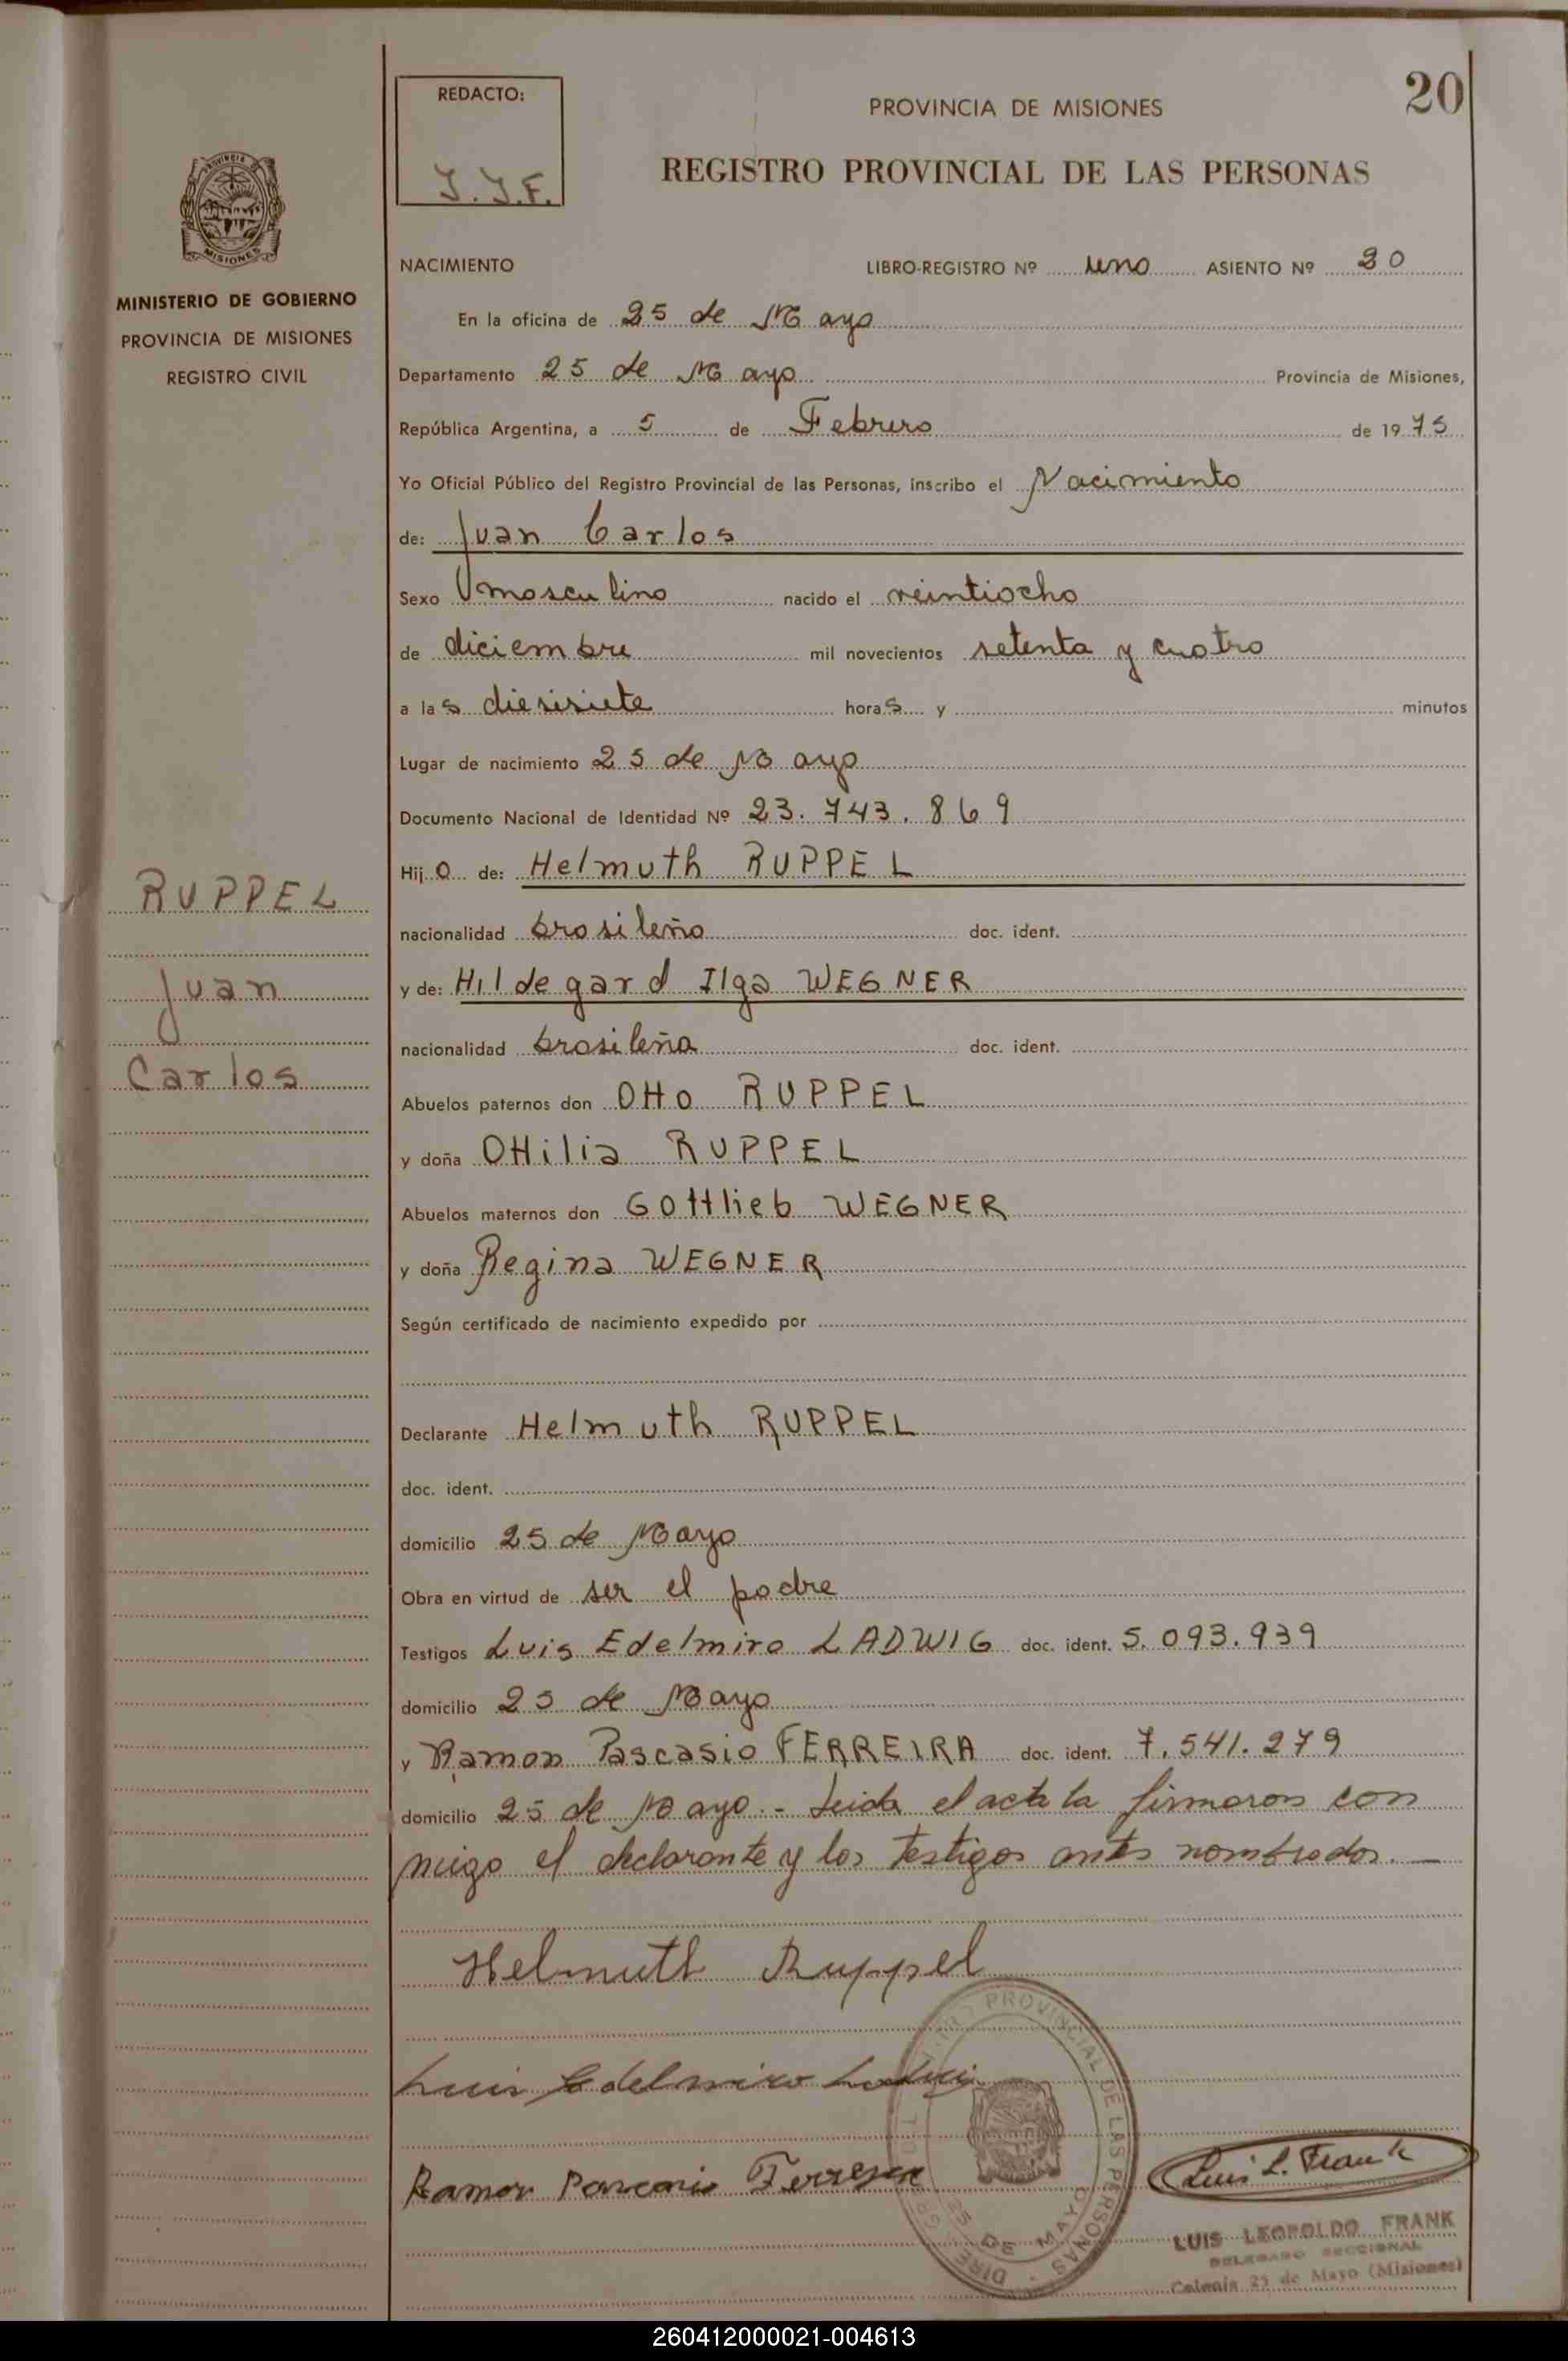 20
REDACTO:
J.J.F.
PROVINCIA DE MISIONES
REGISTRO PROVINCIAL DE LAS PERSONAS
PROVINCIA DE
MISIONES
MINISTERIO DE GOBIERNO
PROVINCIA DE MISIONES
REGISTRO CIVIL
RUPPEL
Juan
Carlos
NACIMIENTO LIBRO-REGISTRO Nº uno ASIENTO Nº 20
En la oficina de 25 de Mayo
Departamento 25 de Mayo Provincia de Misiones,
República Argentina, a 5 de Febrero de 1975
Yo Oficial Público del Registro Provincial de las Personas, inscribo el Nacimiento
de: Juan Carlos
Sexo masculino nacido el veintiocho
de diciembre mil novecientos setenta y cuatro
a las diesisiete horas y minutos
Lugar de nacimiento 25 de Mayo
Documento Nacional de Identidad Nº 23.743.869
Hijo de: Helmuth RUPPEL
nacionalidad brasileño doc. ident.
y de: Hildegard Ilga WEGNER
nacionalidad brasileña doc. ident.
Abuelos paternos don Otto RUPPEL
y doña Ottilia RUPPEL
Abuelos maternos don Gottlieb WEGNER
y doña Regina WEGNER
Según certificado de nacimiento expedido por
Declarante Helmuth RUPPEL
doc. ident.
domicilio 25 de Mayo
Obra en virtud de ser el padre
Testigos Luis Edelmiro LADWIG doc. ident. 5.093.939
domicilio 25 de Mayo
y Ramon Pascasio FERREIRA doc. ident. 7.541.279
domicilio 25 de Mayo.- Leida el acta la firmaron con
migo el declarante y los testigos antes nombrados.—
Helmuth Ruppel
Luis Edelmiro Ladwig
Ramon Pascasio Ferreira
PROVINCIAL DE LAS PERSONAS
25 DE MAYO
Luis L. Frank
LUIS LEOPOLDO FRANK
DELEGADO SECCIONAL
Colonia 25 de Mayo (Misiones)
260412000021-004613